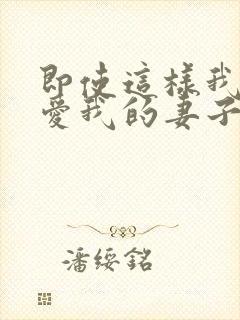 即使這樣我
愛我的妻子
潘綏銘